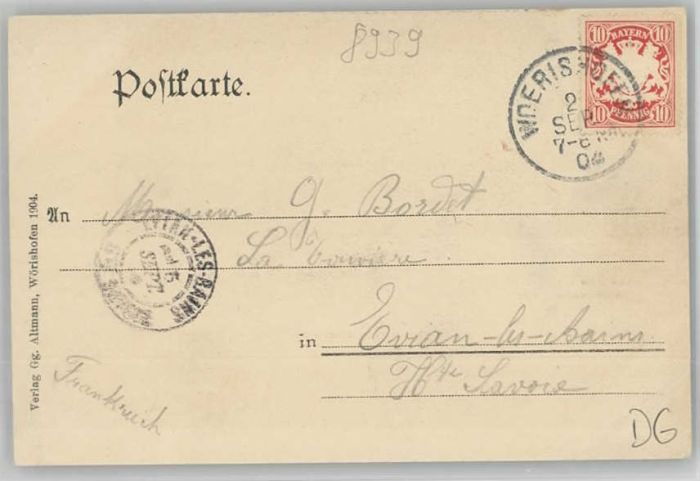 8939
Postkarte.
10 BAYERN 10
10 PFENNIG 10
WOERISHOFEN
2
SEP.
7-8
04
An Monsieur G. Bordet
La
in Evian-les-Bains
Hte Savoie
EVIAN-LES-BAINS
Frankreich
DG
Verlag Gg. Altmann, Wörishofen 1904.